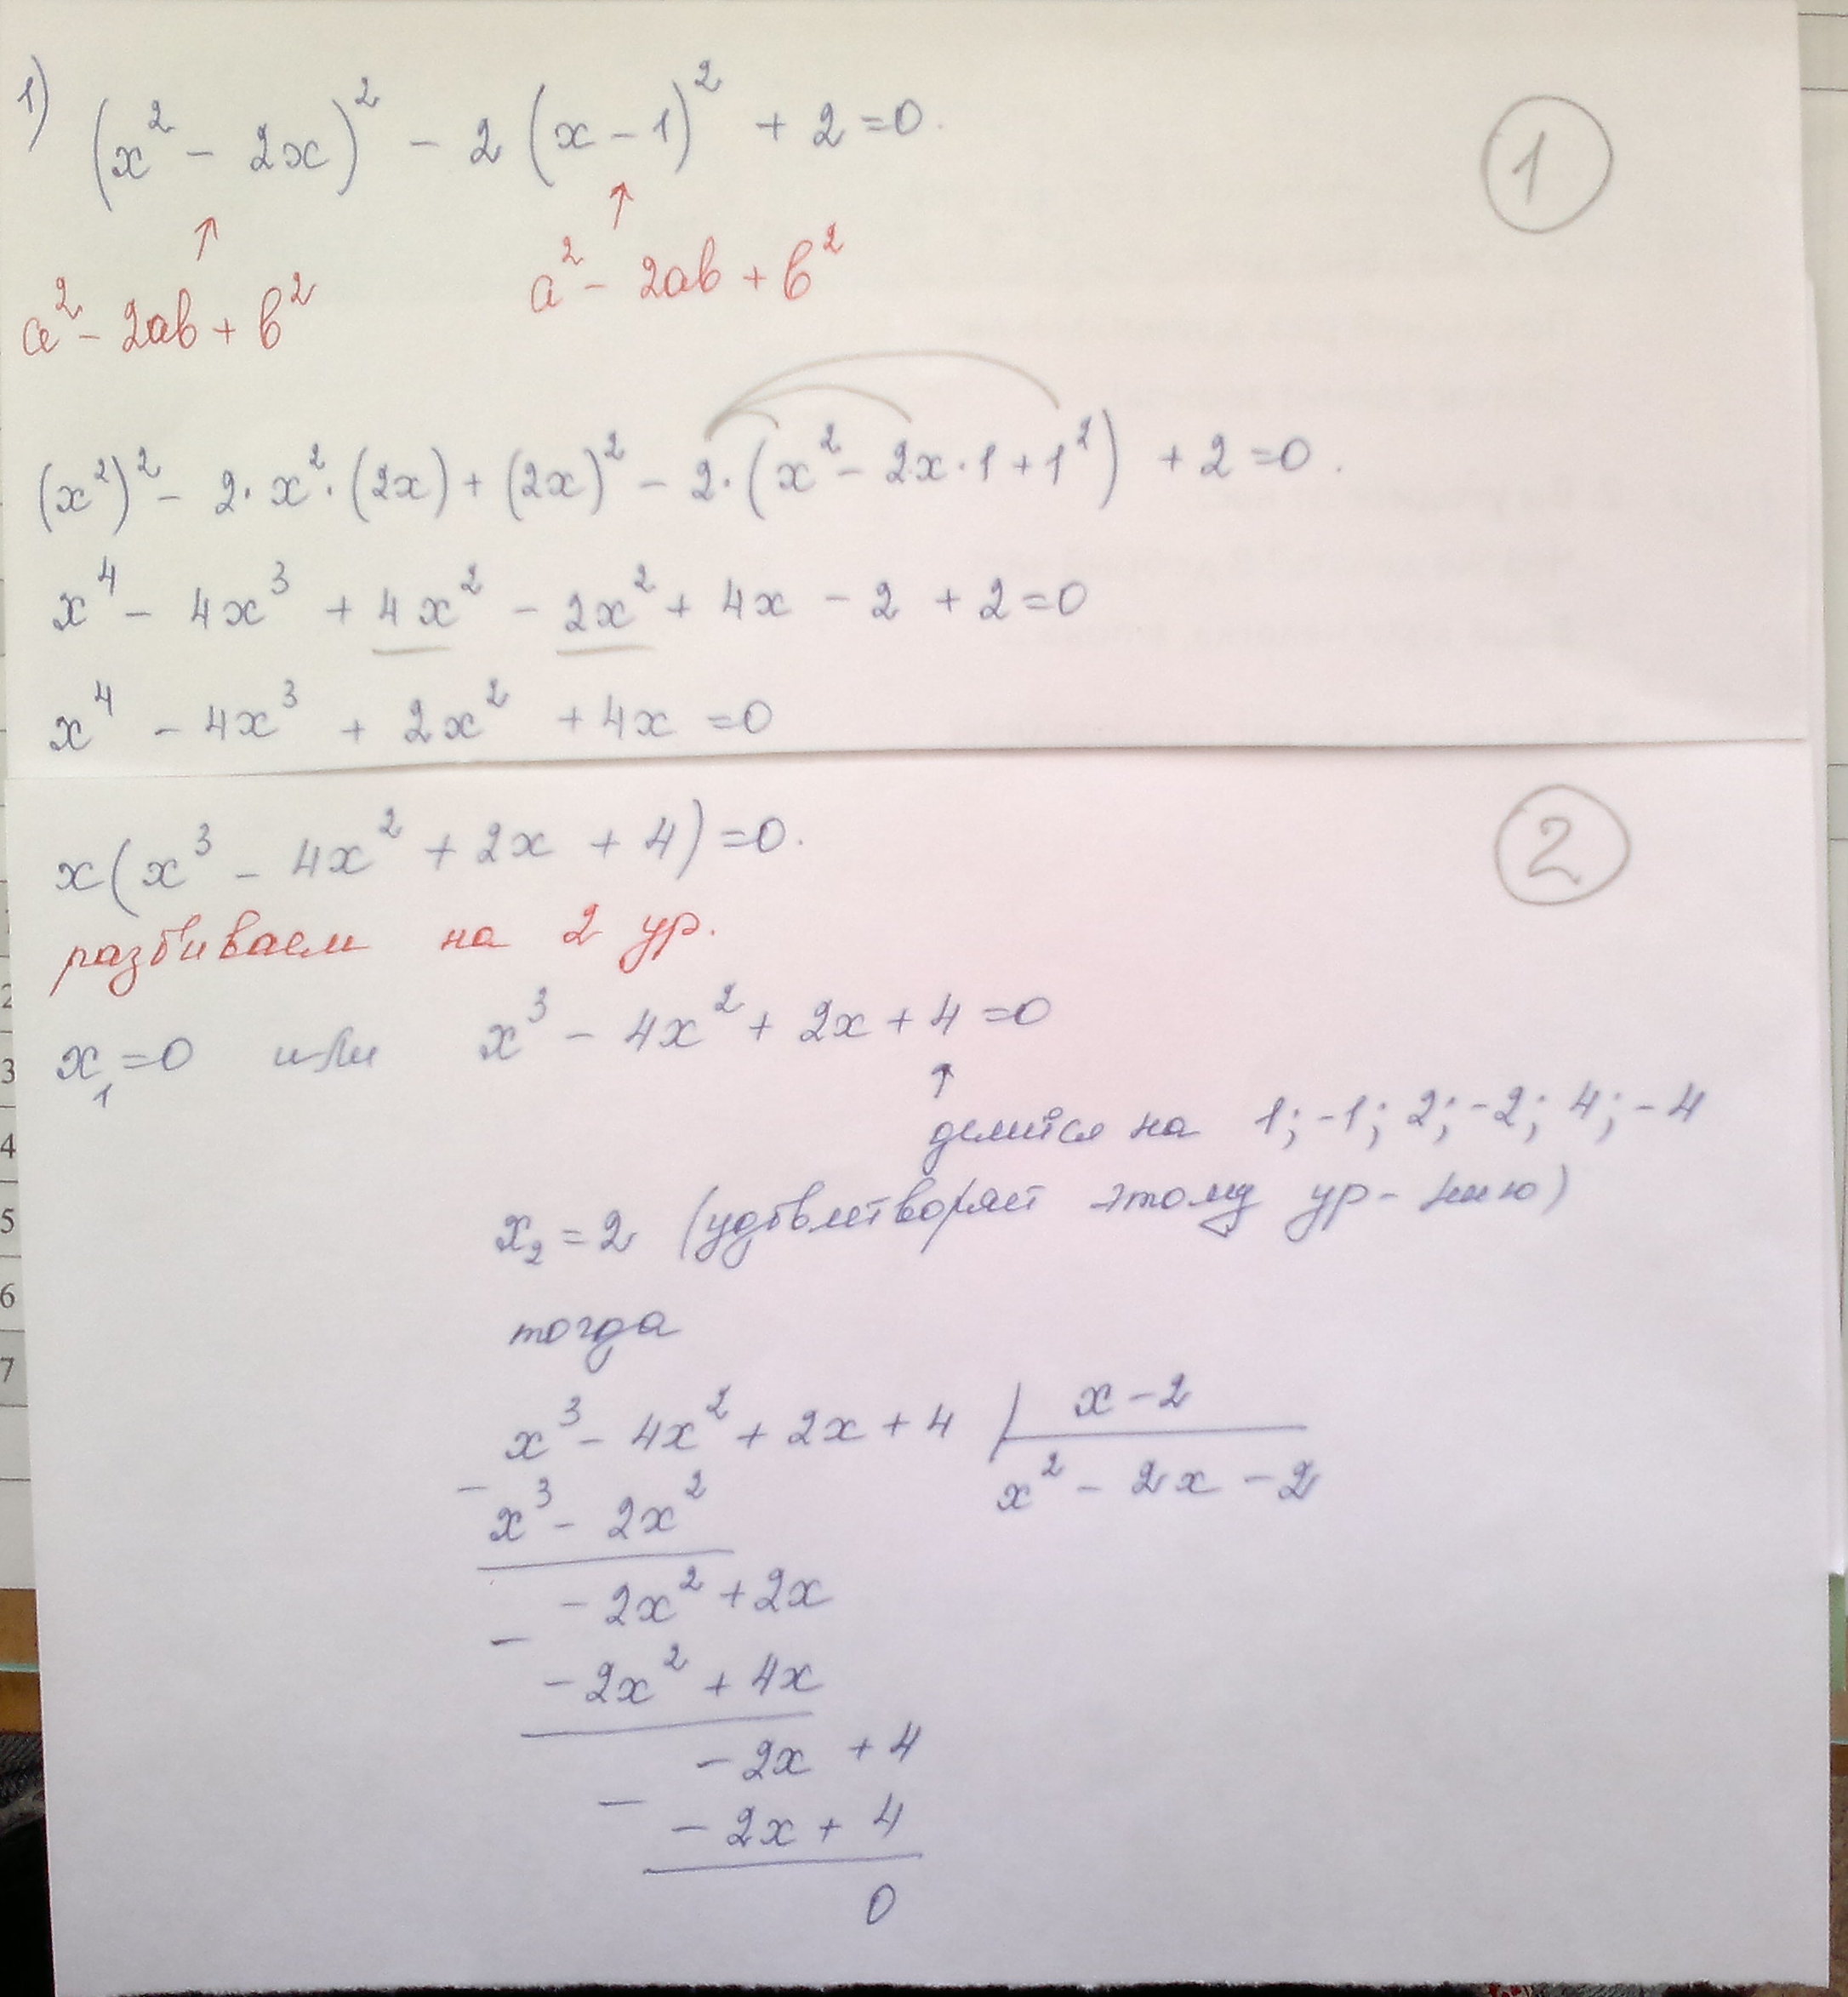 1) (x² - 2x)² - 2(x - 1)² + 2 = 0.
①
↑ ↑
a² - 2ab + b² a² - 2ab + b²
(x²)² - 2·x²·(2x) + (2x)² - 2·(x² - 2x·1 + 1²) + 2 = 0.
x⁴ - 4x³ + 4x² - 2x² + 4x - 2 + 2 = 0
x⁴ - 4x³ + 2x² + 4x = 0
②
x(x³ - 4x² + 2x + 4) = 0.
разбиваем на 2 ур.
x₁ = 0 или x³ - 4x² + 2x + 4 = 0
↑
делится на 1; -1; 2; -2; 4; -4
x₂ = 2 (удовлетворяет этому ур-нию)
тогда
x³ - 4x² + 2x + 4 | x - 2
- x³ - 2x² x² - 2x - 2
- 2x² + 2x
- - 2x² + 4x
- 2x + 4
- - 2x + 4
0
2
3
4
5
6
7